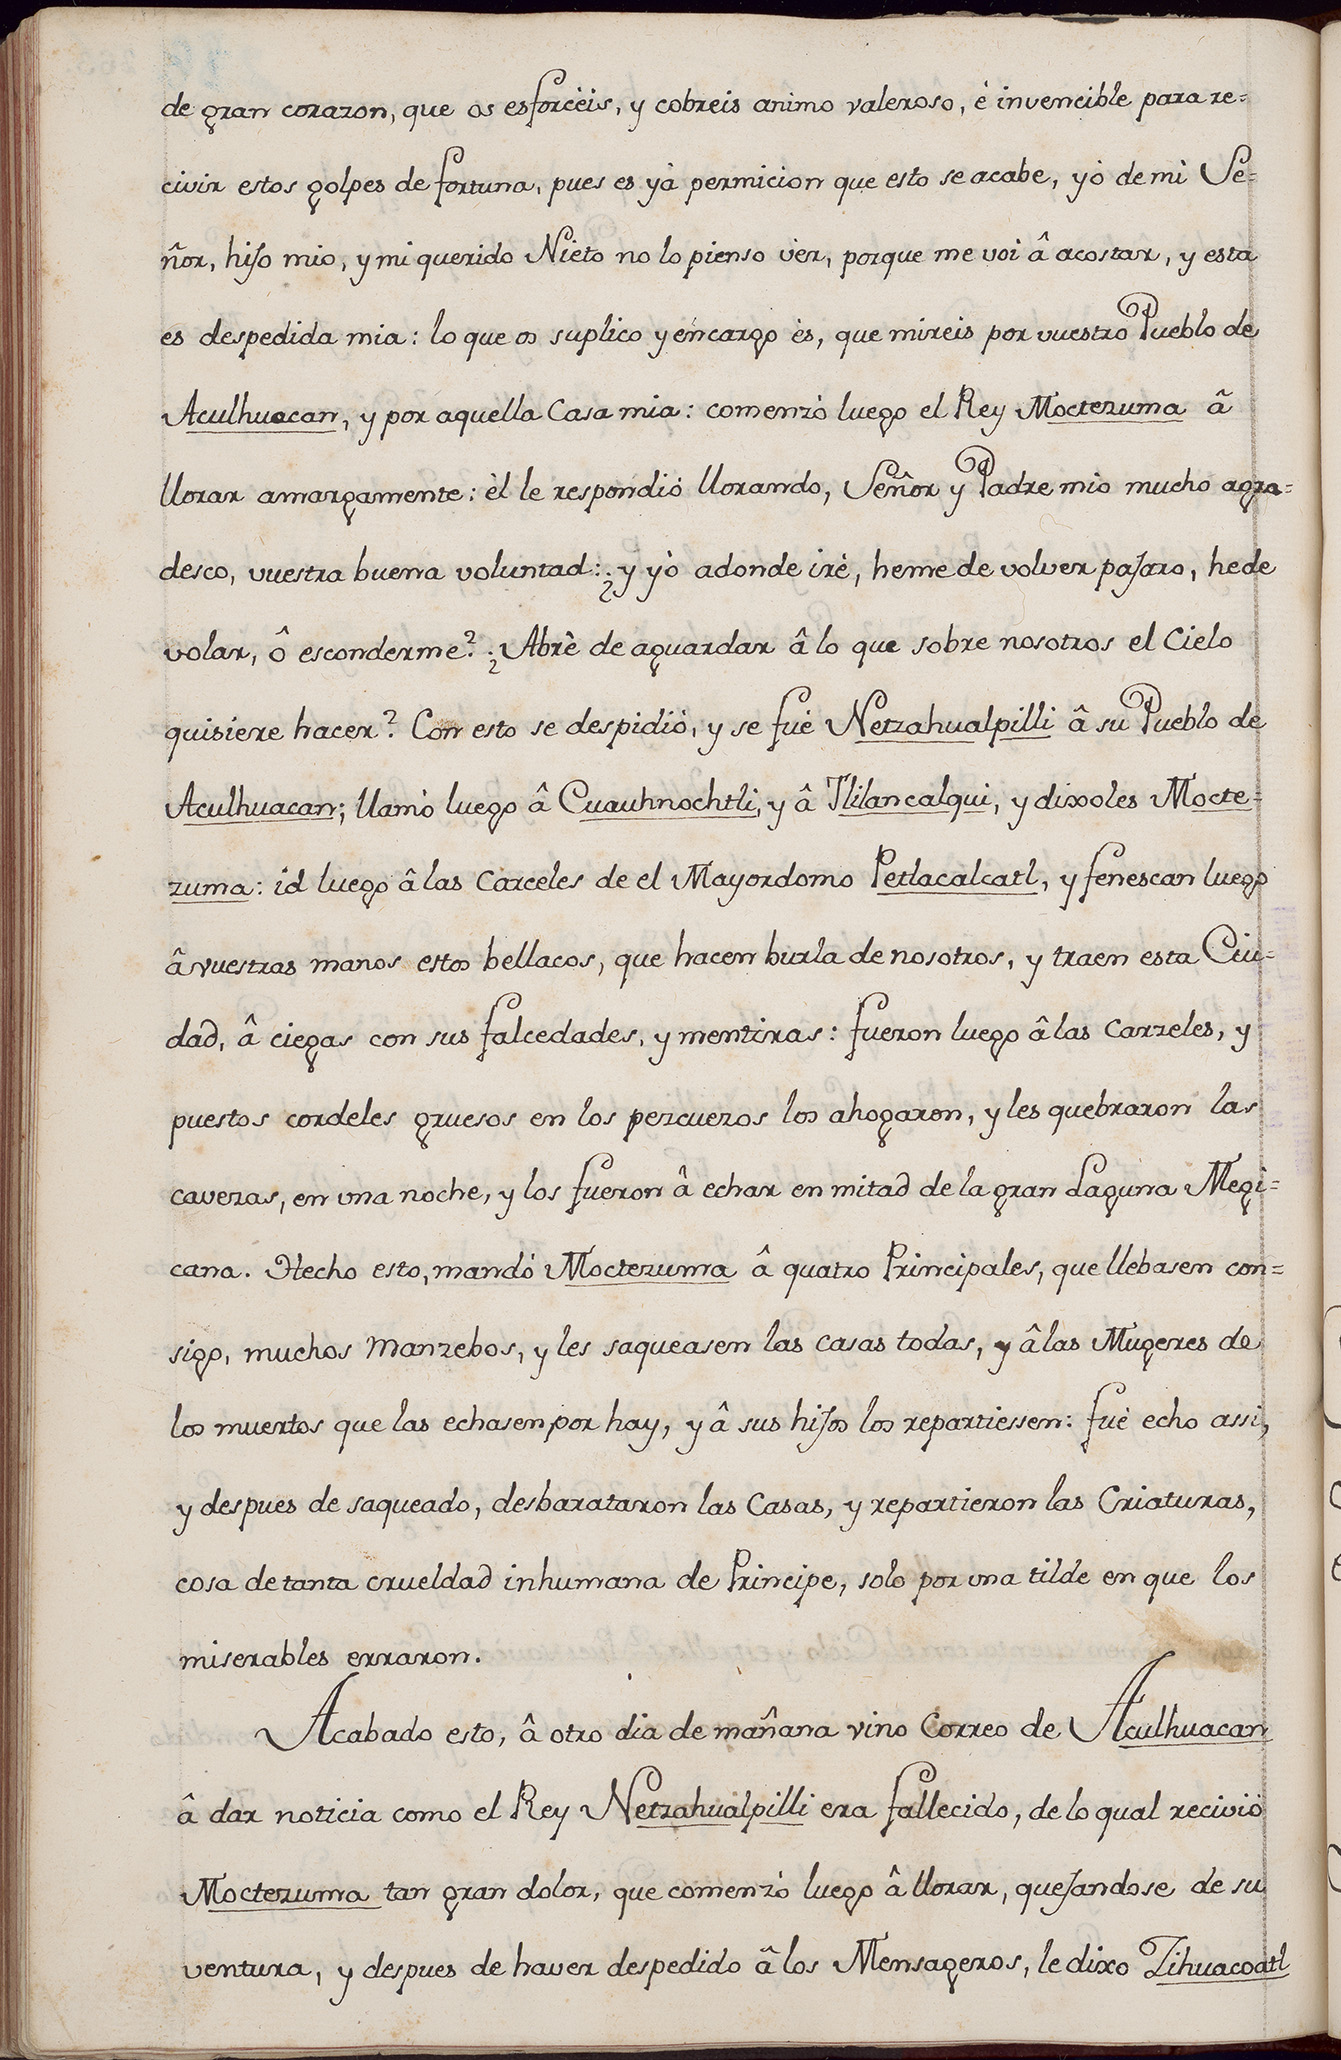 de gran corazon, que os esforcèis, y cobreis animo valeroso, è invencible para re=
civir estos golpes de fortuna, pues es yà permicion que esto se acabe, yò de mi Se=
ñor, hijo mio, y mi querido Nieto no lo pienso ver, porque me voi â acostar, y esta
es despedida mia: lo que os suplico y encargo ès, que mireis por vuestro Pueblo de
Aculhuacan, y por aquella Casa mia: comenzò luego el Rey Moctezuma â
llorar amargamente: èl le respondiò llorando, Señor y Padre mio mucho agra=
desco, vuestra buena voluntad: ¿y yò adonde irè, heme de volver pajaro, he de
volar, ô esconderme? ¿Abrè de aguardar â lo que sobre nosotros el Cielo
quisiere hacer? Con esto se despidiò, y se fuè Netzahualpilli â su Pueblo de
Aculhuacan; llamò luego â Cuauhnochtli, y â Tlilancalqui, y dixoles Mocte=
zuma: id luego â las Carceles de el Mayordomo Petlacalcatl, y fenescan luego
â vuestras manos estos bellacos, que hacen burla de nosotros, y traen esta Ciu=
dad, â ciegas con sus falcedades, y mentiras: fueron luego â las Carzeles, y
puestos cordeles gruesos en los pezcuezos los ahogaron, y les quebraron las
cavezas, en una noche, y los fueron â echar en mitad de la gran Laguna Megi=
cana. Hecho esto, mandò Moctezuma â quatro Principales, que llebasen con=
sigo, muchos Manzebos, y les saqueasen las casas todas, y â las Mugeres de
los muertos que las echasen por hay, y â sus hijos los repartiessen: fuè echo assi,
y despues de saqueado, desbarataron las Casas, y repartieron las Criaturas,
cosa de tanta crueldad inhumana de Principe, solo por una tilde en que los
miserables erraron.
Acabado esto, â otro dia de mañana vino Correo de Aculhuacan
â dar noticia como el Rey Netzahualpilli era fallecido, de lo qual reciviò
Moctezuma tan gran dolor, que comenzò luego â llorar, quejandose de su
ventura, y despues de haver despedido â los Mensageros, le dixo Zihuacoatl